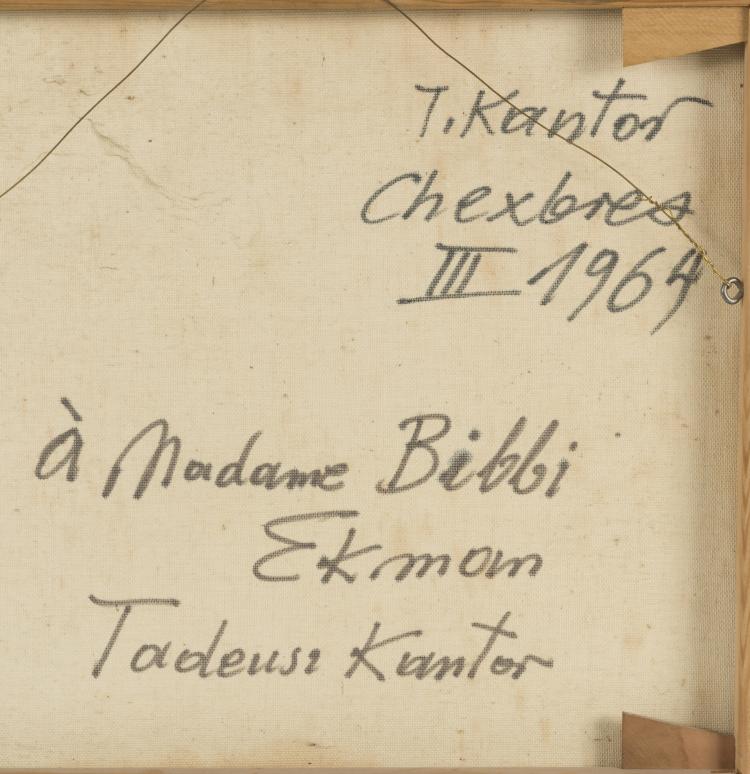 T. Kantor
Chexbres
III 1964
À Madame Bibbi
Ekman
Tadeusz Kantor